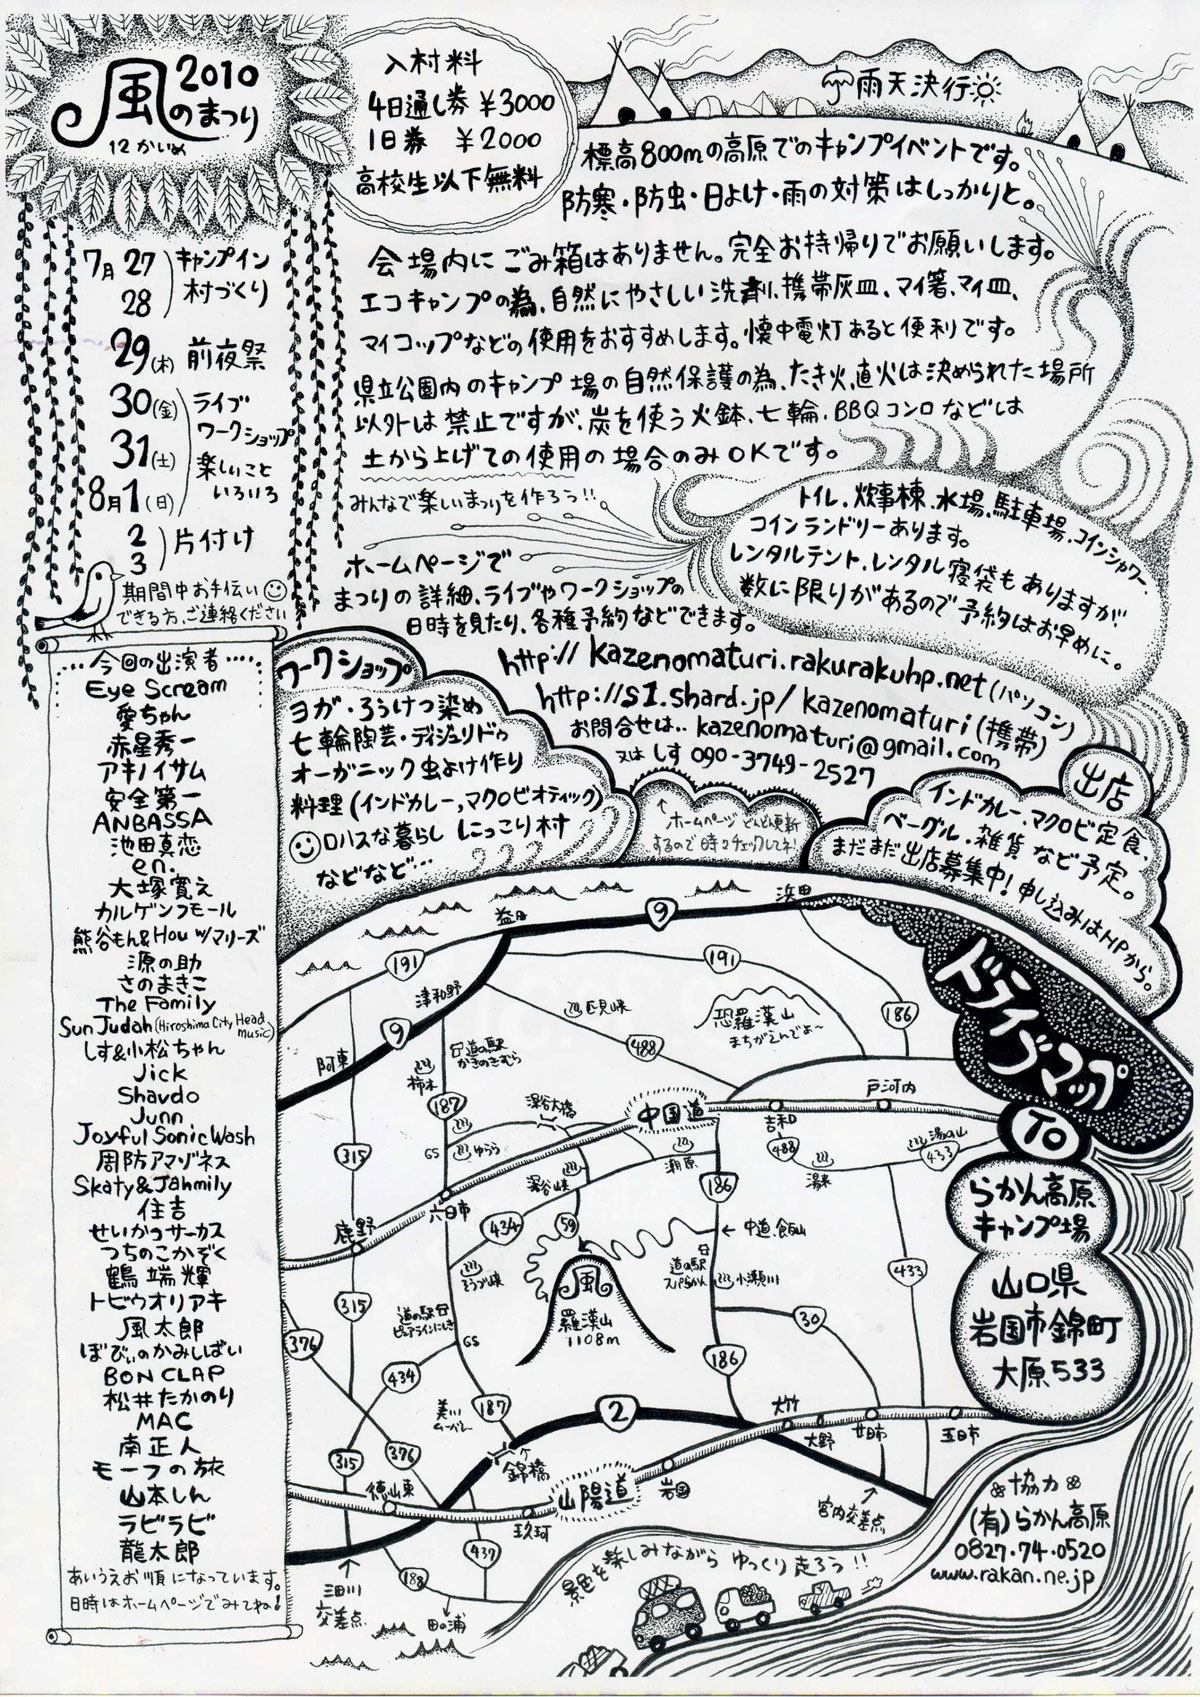 2010
風のまつり
12かいめ
入村料
4日通し券 ¥3000
1日券 ¥2000
高校生以下無料
雨天決行
標高800mの高原でのキャンプイベントです。
防寒・防虫・日よけ・雨の対策はしっかりと。
会場内にごみ箱はありません。完全お持帰りでお願いします。
エコキャンプの為、自然にやさしい洗剤、携帯灰皿、マイ箸、マイ皿、
マイコップなどの使用をおすすめします。懐中電灯あると便利です。
県立公園内のキャンプ場の自然保護の為、たき火、直火は決められた場所
以外は禁止ですが、炭を使う火鉢、七輪、BBQコンロなどは
土から上げての使用の場合のみOKです。
みんなで楽しいまつりを作ろう!!
7月27
28
キャンプイン
村づくり
29(木) 前夜祭
30(金)
31(土)
8月1(日)
ライブ
ワークショップ
楽しいこと
いろいろ
2
3
片付け
期間中お手伝い
できる方、ご連絡ください
トイレ、炊事棟、水場、駐車場、コインシャワー、
コインランドリーあります。
レンタルテント、レンタル寝袋もありますが
数に限りがあるので予約はお早めに。
ホームページで
まつりの詳細、ライブやワークショップの
日時を見たり、各種予約などできます。
http://kazenomaturi.rakurakuhp.net(パソコン)
http://s1.shard.jp/kazenomaturi(携帯)
お問合せは… kazenomaturi@gmail.com
又は しす 090-3749-2527
↑ホームページどんどん更新
するので時々チェックしてネ!
…今回の出演者…
Eye Scream
愛ちゃん
赤星秀一
アキノイサム
安全第一
ANBASSA
池田真恋
en.
大塚寛之
カルゲンフモール
熊谷もん&Hou w/マリーズ
源の助
さのまきこ
The Family
Sun Judah(Hiroshima City Head music)
しす&小松ちゃん
Jick
Shavdo
Junn
Joyful Sonic Wash
周防アマゾネス
Skaty&Jahmily
住吉
せいかつサーカス
つちのこかぞく
鶴端輝
トビウオリアキ
風太郎
ぼびぃのかみしばい
BON CLAP
松井たかのり
MAC
南正人
モーフの旅
山本しん
ラビラビ
龍太郎
あいうえお順になっています。
日時はホームページでみてね!
ワークショップ
ヨガ・ろうけつ染め
七輪陶芸・ディジュリドゥ
オーガニック虫よけ作り
料理(インドカレー、マクロビオティック)
ロハスな暮らし にっこり村
などなど…
出店
インドカレー、マクロビ定食、
ベーグル、雑貨など予定。
まだまだ出店募集中!申し込みはHPから。
ドライブマップ
TO
らかん高原
キャンプ場
山口県
岩国市錦町
大原533
益田
9
浜田
191
191
津和野
匹見峡
恐羅漢山
まちがえんでよ〜
186
9
488
阿東
道の駅
かきのきむら
柿木
187
深谷大橋
中国道
吉和
戸河内
488
湯来
湯の山
433
315
GS
ゆらら
潮原
186
深谷峡
六日市
鹿野
434
59
← 中道、飯山
道の駅
スパらかん
小瀬川
433
風
羅漢山
1108m
315
道の駅
ピュアラインにしき
GS
30
376
434
186
187
2
大竹
大野
廿日市
五日市
315
376
錦橋
徳山東
山陽道
岩国
玖珂
宮内交差点
437
三田川
交差点
188
田の浦
景色を楽しみながら ゆっくり走ろう!!
協力
(有)らかん高原
0827・74・0520
www.rakan.ne.jp